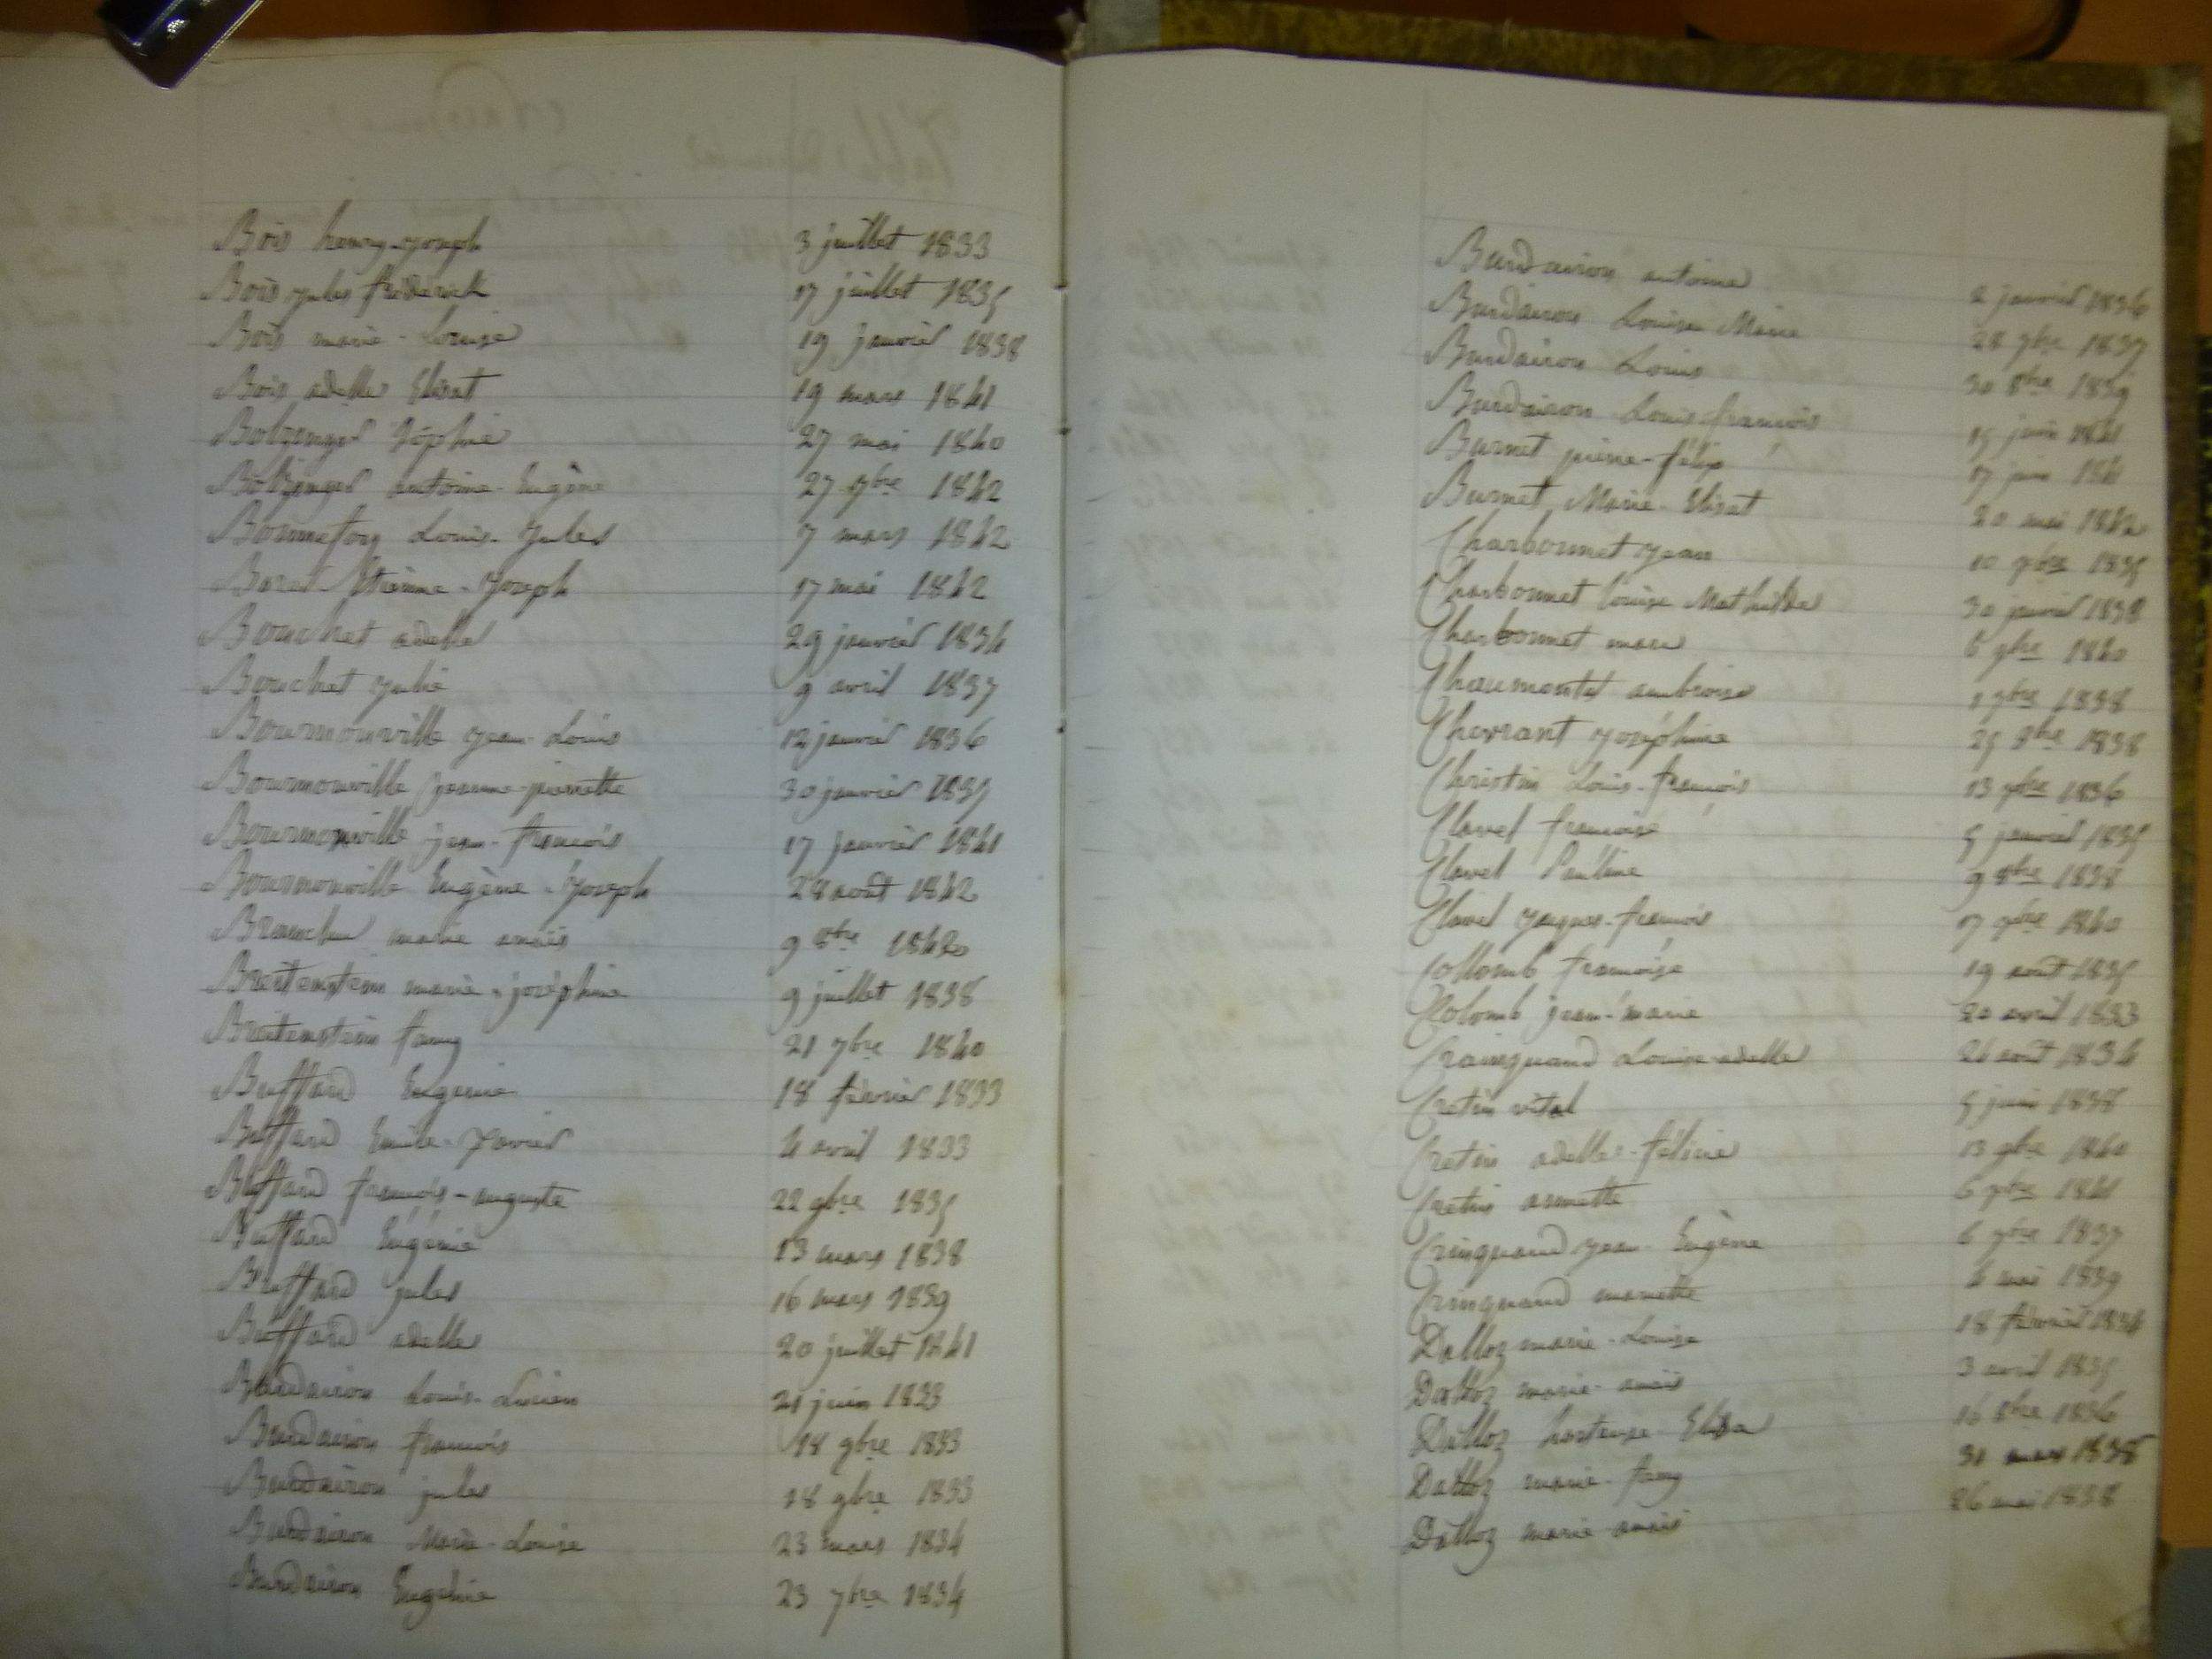 Bois henry-joseph 3 juillet 1833
Bois jules frédérick 17 juillet 1835
Bois marie-Louise 19 janvier 1838
Bois adelle Elisat 19 mars 1841
Bolzinger Sophie 27 mai 1840
Bolzinger antoine-Eugène 27 7bre 1842
Bonnefoy Louis-Jules 7 mars 1842
Etienne-Joseph 17 mai 1842
Bouchet adelle 29 janvier 1834
Bouchet Julie 9 avril 1837
Bournonville jean-Louis 12 janvier 1836
Bournonville jeanne-pierrette 30 janvier 1837
Bournonville jean-françois 17 janvier 1841
Bournonville Eugène-Joseph 28 août 1842
marie anaïs 9 8bre 1842
Breitenstein marie-joséphine 9 juillet 1838
Breitenstein fany 21 7bre 1840
Buffard Eugenie 18 février 1833
Buffard Emile-Xavier 4 avril 1833
Buffard françois-auguste 22 9bre 1835
Buffard Eugénie 13 mars 1838
Buffard jules 16 mars 1839
Buffard adelle 20 juillet 1841
Burdairon Louis-Lucien 21 juin 1833
Burdairon françois 18 9bre 1833
Burdairon jules 18 9bre 1833
Burdairon Marie-Louise 23 mars 1834
Burdairon Eugénie 23 7bre 1834
Burdairon antoine 2 janvier 1836
Burdairon Louise Marie 28 7bre 1837
Burdairon Louis 30 8bre 1839
Burdairon Louis-françois 15 juin 1841
Burnet pierre-félix 17 juin 1841
Burnet Marie-Elisat 20 mai 1842
Charbonnet jean 10 1835
Charbonnet Louise Mathilde 30 janvier 1838
Charbonnet marie 6 9bre 1840
Chaumontet ambroise 1 7bre 1838
Chevrant Joséphine 25 8bre 1838
Christin Louis-françois 13 1836
Clavel françoise 5 janvier 1835
Clavel Pauline 9 8bre 1838
Clavel Jacques-françois 17 9bre 1840
Collomb françoise 19 août 1835
Colomb jean-marie 20 avril 1833
Crainquand Louise-adelle 24 août 1834
Cretin vital 5 juin 1838
Cretin adelle-féline 13 9bre 1840
Cretin annette 6 1841
Crinquand jean-Eugène 6 7bre 1837
Crinquand mariette 4 mai 1839
Dalloz marie-Louise 18 février 1834
Dalloz marie-anaïs 3 avril 1835
Dalloz hortense-Elisa 16 8bre 1836
Dalloz marie-fany 31 mars 1838
Dalloz marie-anaïs 26 mai 1838